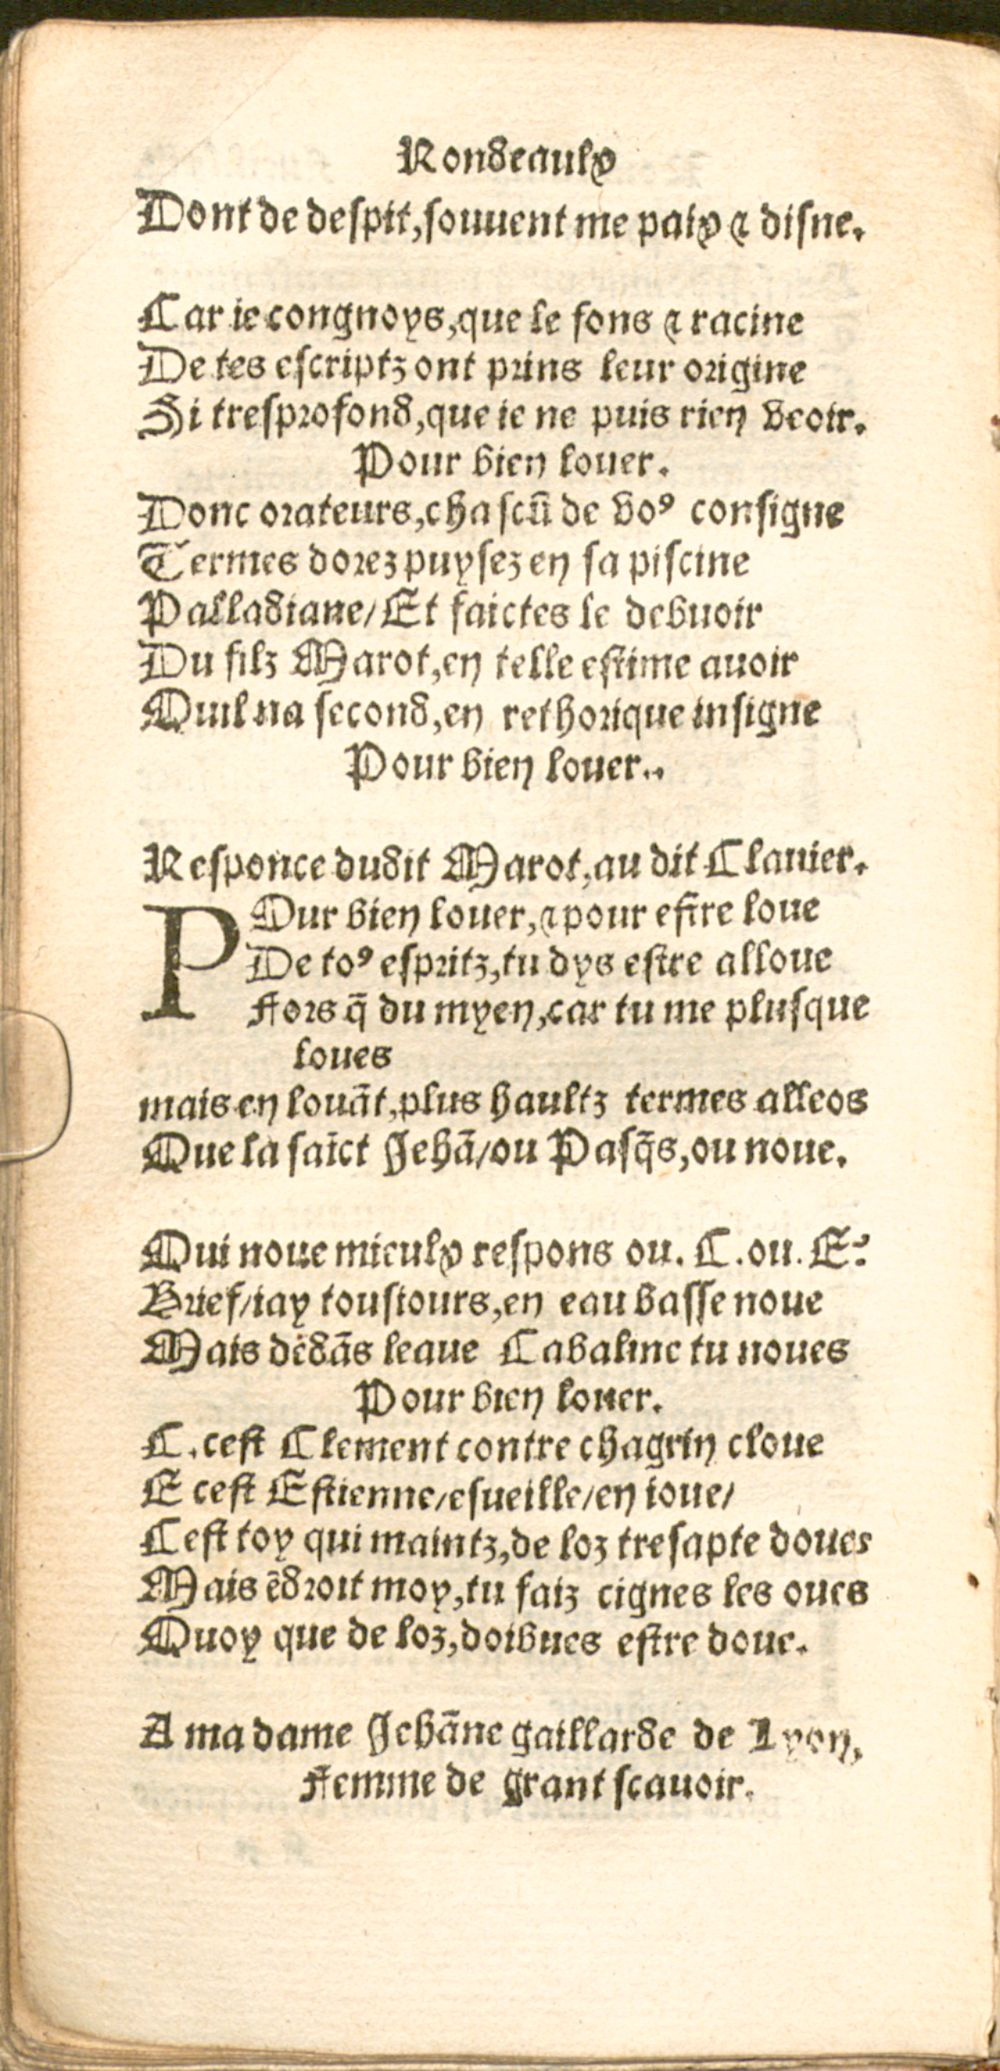 Rondeaulx
Dont de despit, souuent me paix & disne.
Car ie congnoys, que le fons & racine
De tes escriptz ont prins leur origine
Si tresprofond, que ie ne puis rien veoir.
Pour bien louer.
Donc orateurs, chascũ de voꝰ consigne
Termes dorez puysez en sa piscine
Palladiane/ Et faictes le debuoir
Du filz Marot, en telle estime auoir
Quil na second, en rethorique insigne
Pour bien louer..
Responce dudit Marot, au dit Clauier.
POur bien louer, & pour estre loue
De toꝰ espritz, tu dys estre alloue
Fors q̃ du myen, car tu me plusque
loues
mais en louãt, plus haultz termes alleos
Que la saĩct Jehã/ou Pasq̃s, ou noue.
Qui noue mieulx respons ou. C. ou. E?
Brief/iay tousiours, en eau basse noue
Mais dẽdãs leaue Cabaline tu noues
Pour bien louer.
C. cest Clement contre chagrin cloue
E cest Estienne/esueille/en ioue/
Cest toy qui maintz, de loz tresapte doues
Mais ẽdroit moy, tu faiz cignes les oues
Quoy que de loz, doibues estre doue.
A ma dame Jehãne gaillarde de Lyon,
Femme de grant scauoir.